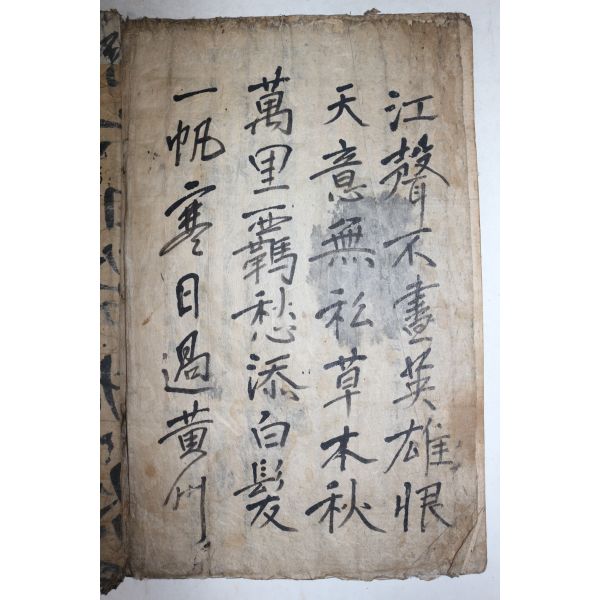 江聲不盡英雄恨
天意無私草木秋
萬里羈愁添白髮
一帆寒日過黃州